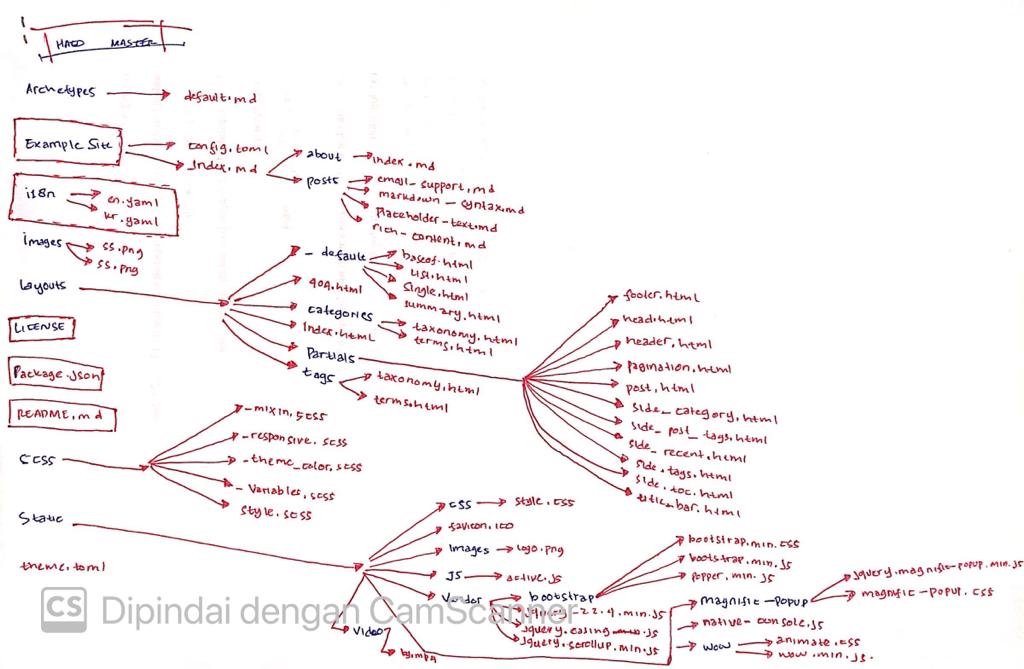 HALO MASTER
Archetypes default.md
Example Site config.toml
Index.md about index.md
posts email_support.md
markdown-syntax.md
placeholder-text.md
rich-content.md
i18n en.yaml
kr.yaml
images ss.png
ss.png
Layouts
_default baseof.html
list.html
single.html
summary.html
404.html
categories taxonomy.html
terms.html
index.html
Partials
footer.html
head.html
header.html
pagination.html
post.html
side_category.html
side_post_tags.html
side_recent.html
side_tags.html
side_toc.html
title_bar.html
tags taxonomy.html
terms.html
LICENSE
Package.json
README.md
SCSS
_mixin.scss
_responsive.scss
_theme_color.scss
_variables.scss
style.scss
Static
css style.css
favicon.ico
images logo.png
JS active.js
Vendor bootstrap
bootstrap.min.css
bootstrap.min.js
popper.min.js
jquery-2.2.4.min.js
jquery.easing.js
jquery.scrollup.min.js
magnific-popup
jquery.magnific-popup.min.js
magnific-popup.css
native-console.js
wow animate.css
wow.min.js
Video
theme.toml
CS Dipindai dengan CamScanner